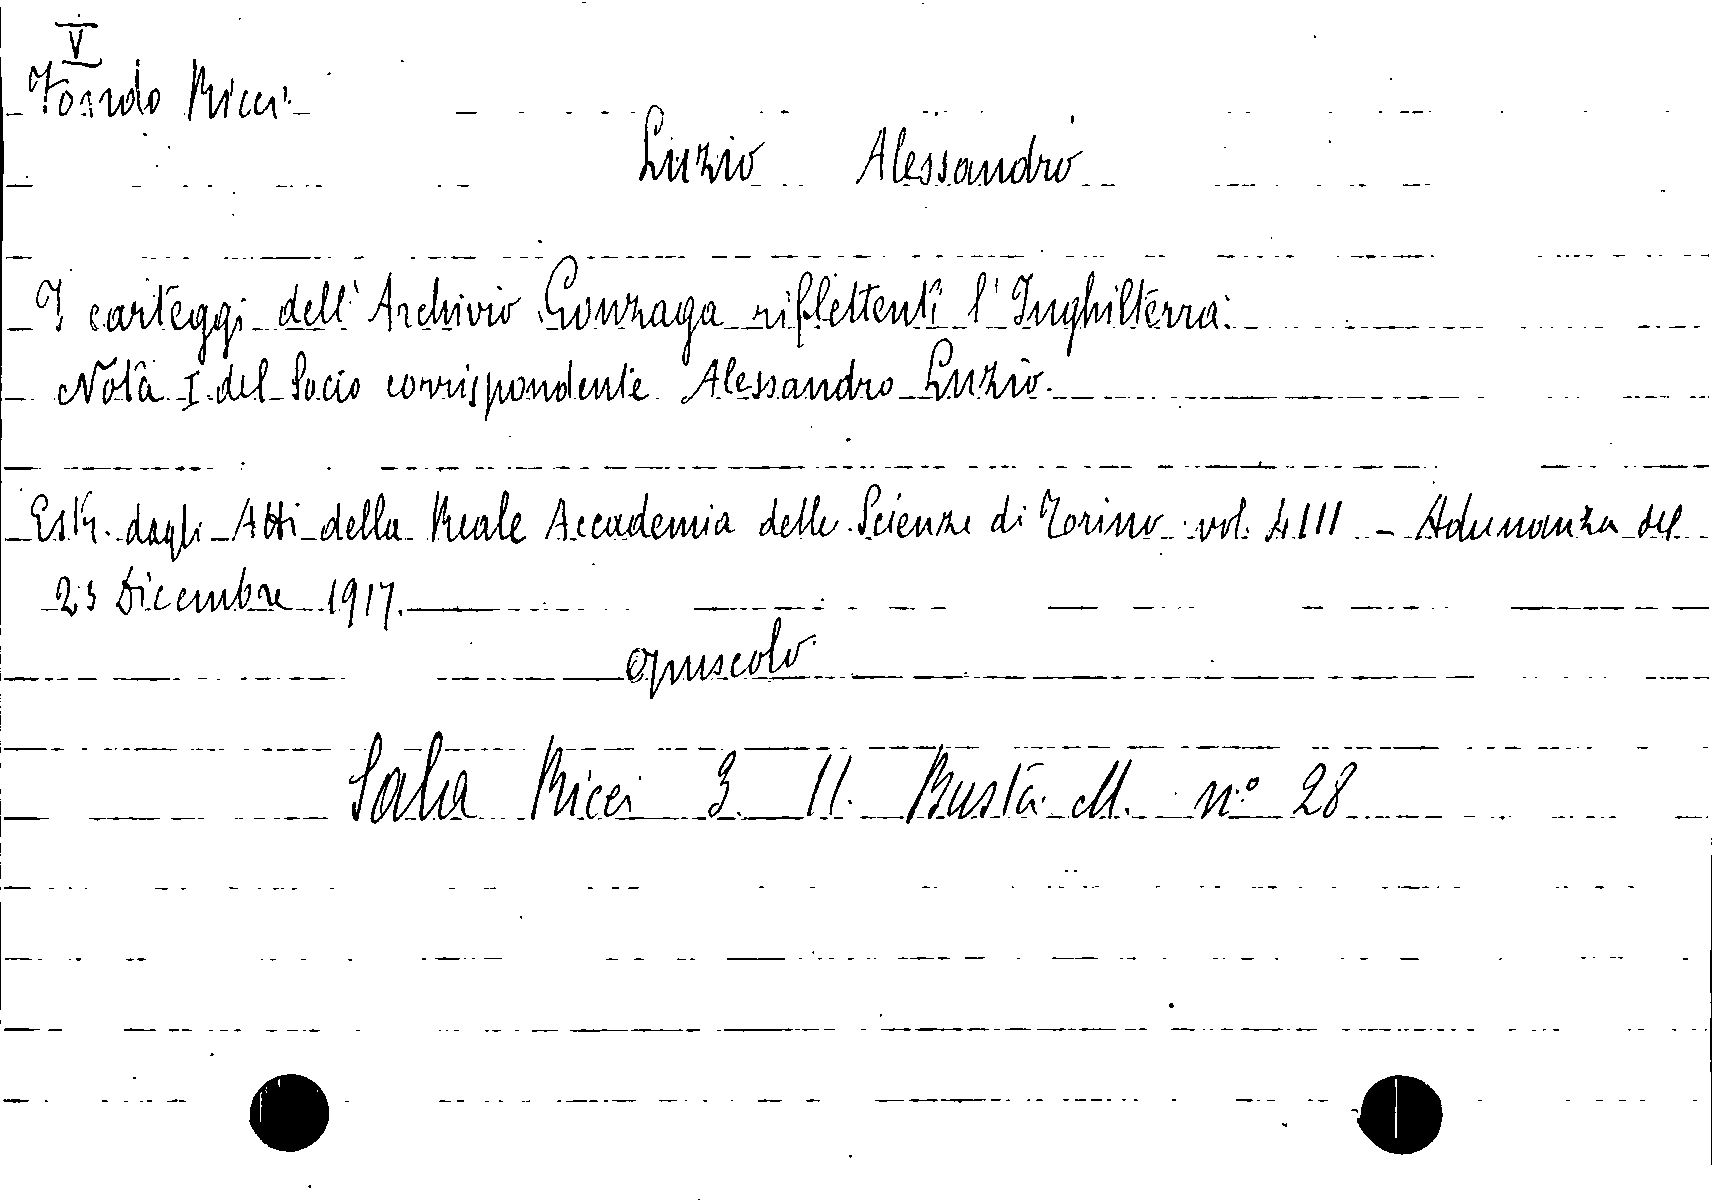 V
Fondo Ricci
Luzio Alessandro
I carteggi dell'Archivio Gonzaga riflettenti l'Inghilterra.
Nota I del Socio corrispondente Alessandro Luzio.
Estr. dagli Atti della Reale Accademia delle Scienze di Torino vol. LIII - Adunanza del
23 Dicembre 1917.
opuscolo
Sala Ricci 3. 11. Busta M. n° 28